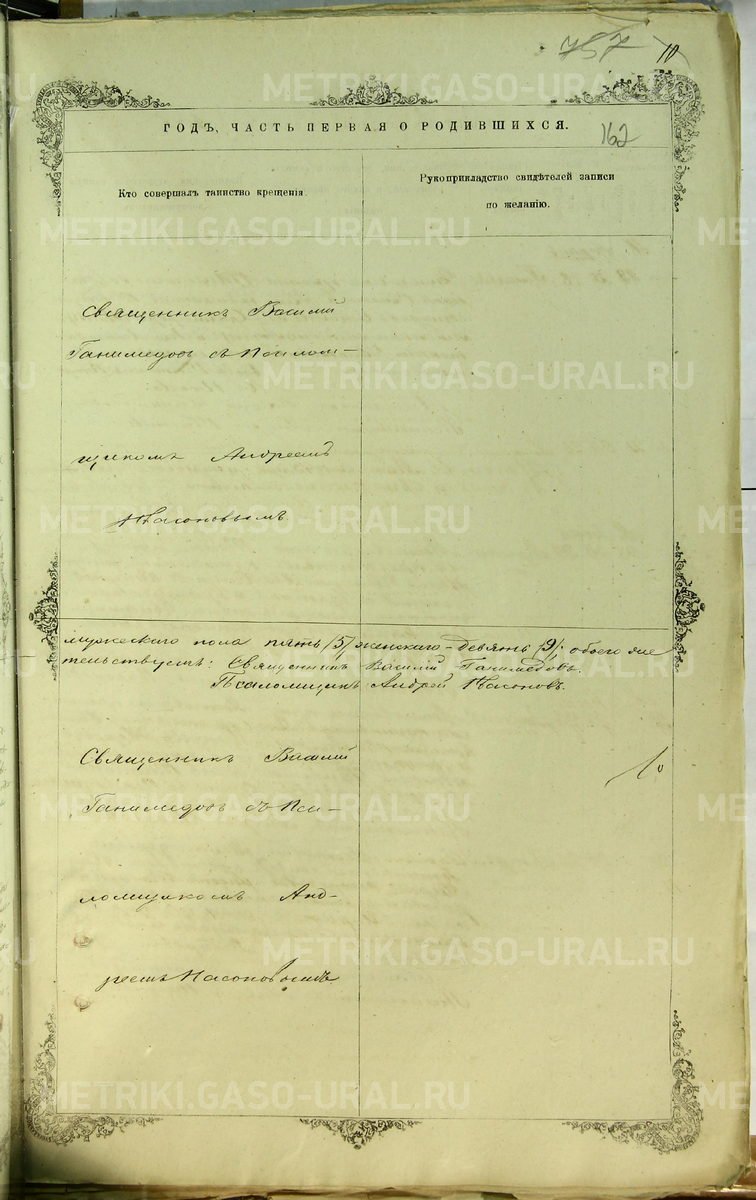 757 10
ГОДЪ, ЧАСТЬ ПЕРВАЯ О РОДИВШИХСЯ.
162
Кто совершалъ таинство крещенія.
Рукоприкладство свидѣтелей записи
по желанію.
Священникъ Василій
Ганимедовъ съ Псалом-
щикомъ Андреемъ
Насоновымъ
мужескаго пола пять /5/ женскаго - девять /9/; обоего
тельствуемъ: Священникъ Василій Ганимедовъ.
Псаломщикъ Андрей Насоновъ.
Священникъ Василій
Ганимедовъ съ Пса-
ломщикомъ Анд-
реемъ Насоновымъ
METRIKI.GASO-URAL.RU